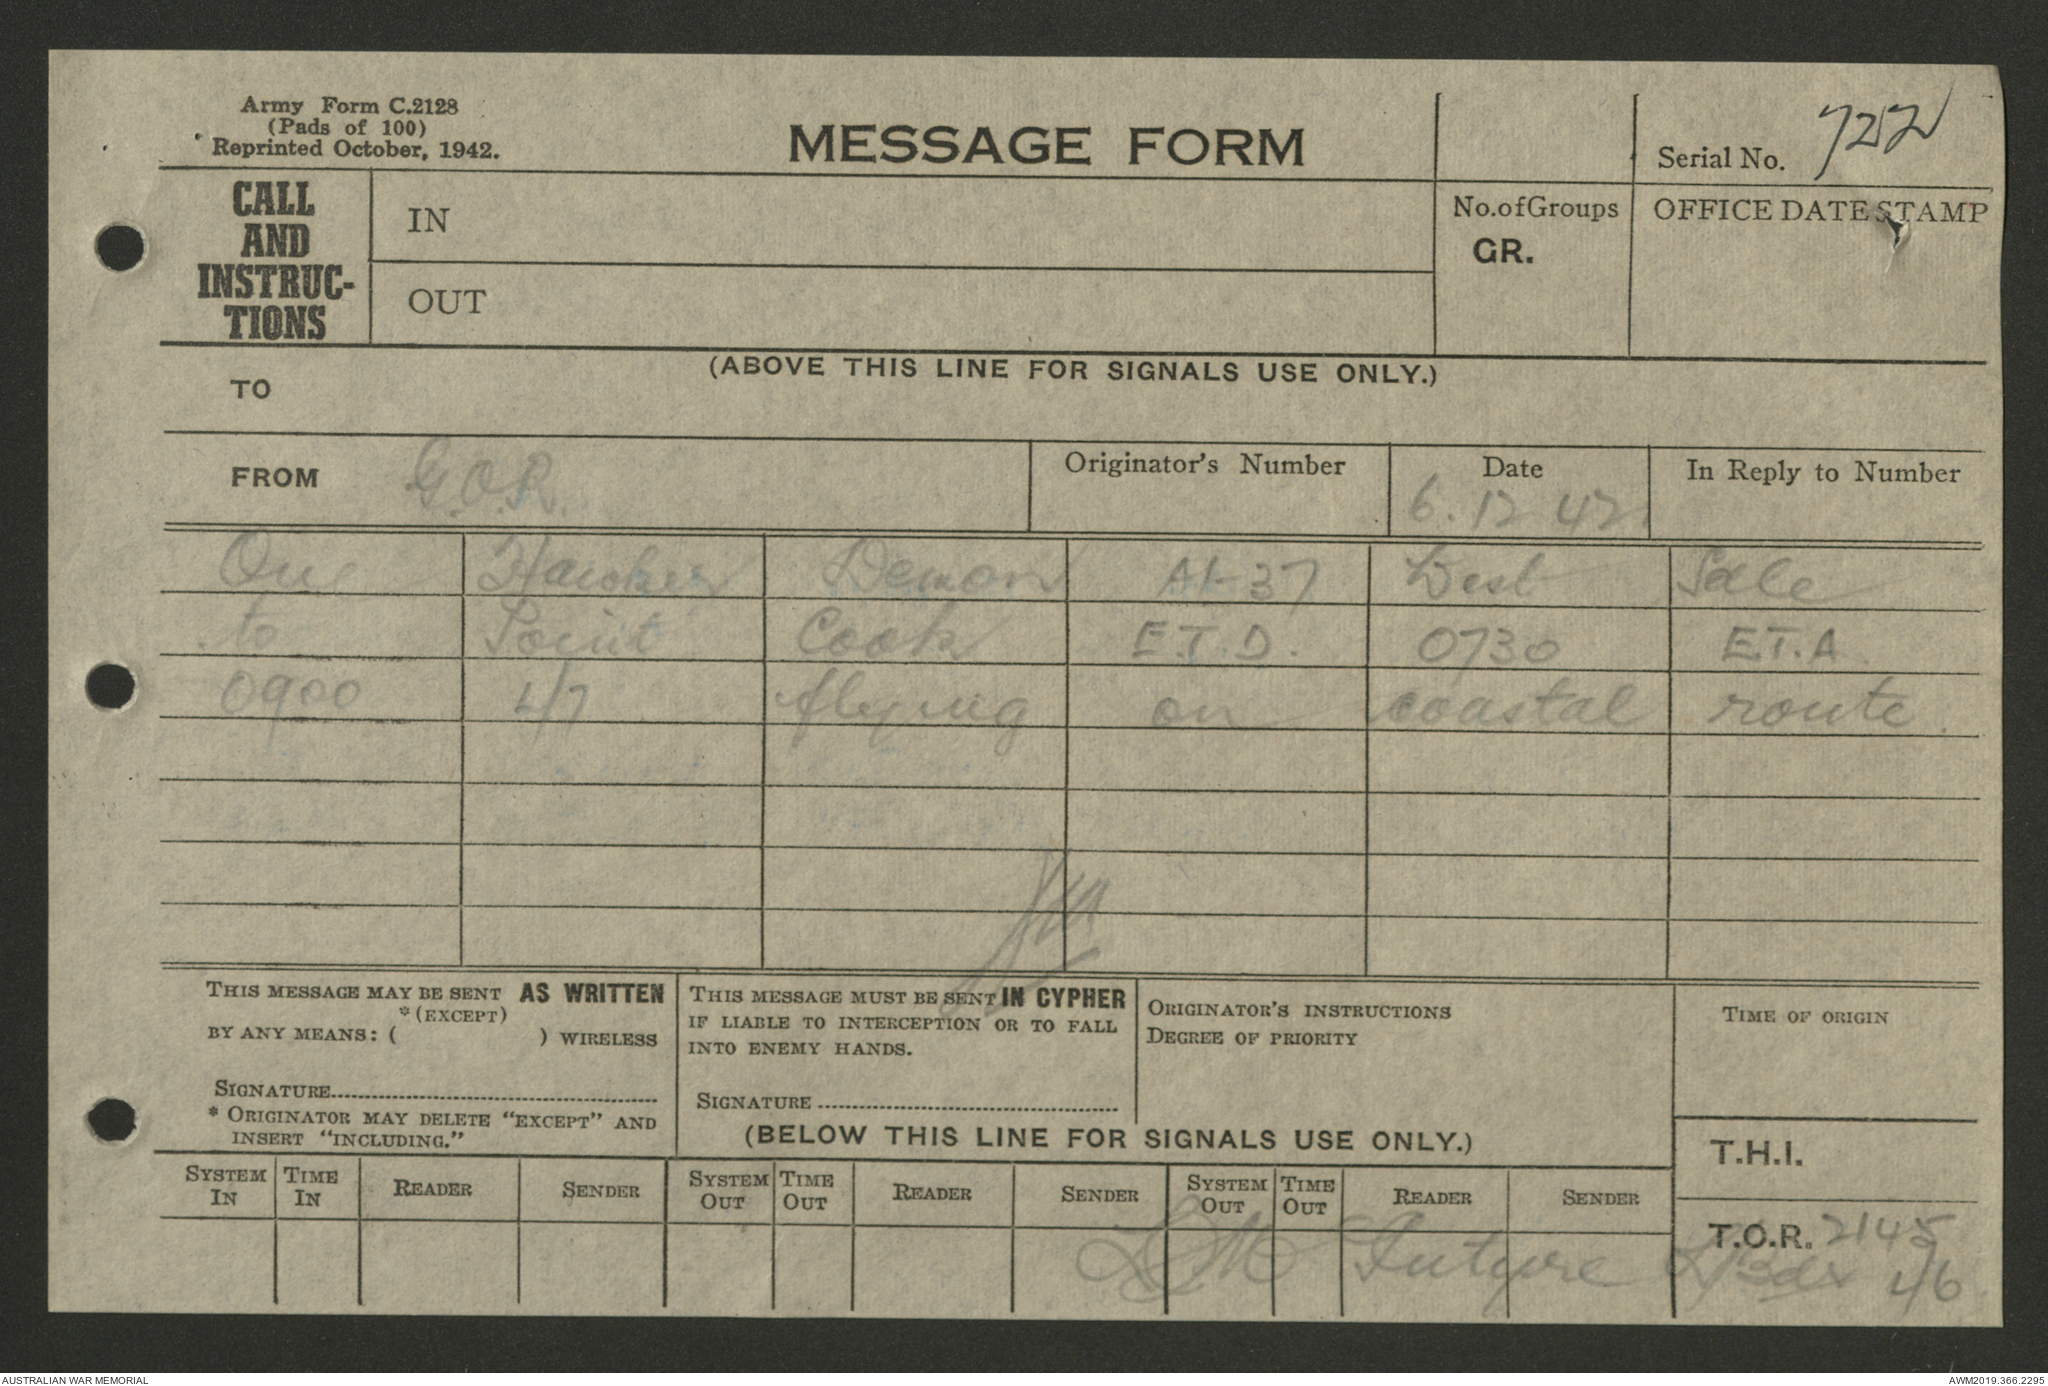 Army Form C.2128
(Pads of 100)
Reprinted October, 1942.
MESSAGE FORM
Serial No. 7252
CALL AND INSTRUC-TIONS
IN
OUT
No.of Groups
GR.
OFFICE DATE STAMP
(ABOVE THIS LINE FOR SIGNALS USE ONLY.)
TO
FROM G.O.R.
Originator's Number
Date 6.12.42
In Reply to Number
One Hawker Demon A1-37 West Sale
to Point Cook E.T.D. 0730 E.T.A.
0900 4/7 flying on coastal route.
THIS MESSAGE MAY BE SENT AS WRITTEN
*(EXCEPT)
BY ANY MEANS: ( ) WIRELESS
SIGNATURE
* ORIGINATOR MAY DELETE "EXCEPT" AND
INSERT "INCLUDING."
THIS MESSAGE MUST BE SENT IN CYPHER
IF LIABLE TO INTERCEPTION OR TO FALL
INTO ENEMY HANDS.
SIGNATURE
ORIGINATOR'S INSTRUCTIONS
DEGREE OF PRIORITY
TIME OF ORIGIN
(BELOW THIS LINE FOR SIGNALS USE ONLY.)
T.H.I.
SYSTEM IN TIME IN READER SENDER SYSTEM OUT TIME OUT READER SENDER SYSTEM OUT TIME OUT READER SENDER
T.O.R. 2145
4/6
AUSTRALIAN WAR MEMORIAL
AWM2019.366.2295